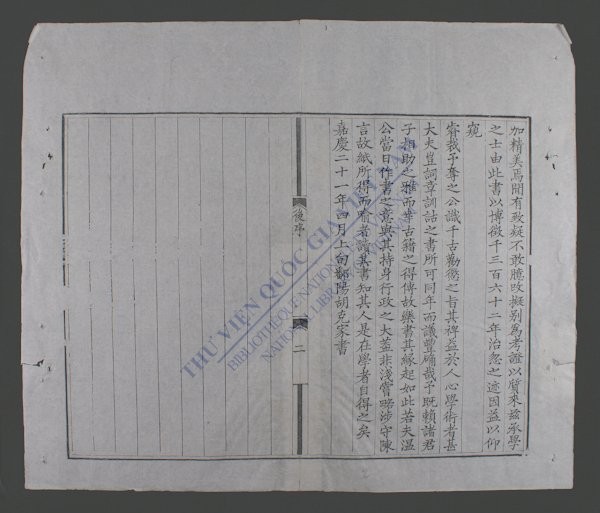 加精美焉間有致疑不敢臆改擬别為考證以質來茲承學
之士由此書以博徵千三百六十二年治忽之迹因益以仰
窺
睿裁予奪之公識千古勸懲之旨其裨益於人心學術者甚
大夫豈詞章訓詁之書所可同年而議豐确哉予既賴諸君
子相助之雅而幸古籍之得傳故樂書其緣起如此若夫溫
公當日作書之意與其持身行政之大蓋非淺嘗踊涉守陳
言故紙所得而喻者讀其書知其人是在學者自得之矣
嘉慶二十一年四月上旬鄱陽胡克家書
後序
二
THƯ VIỆN QUỐC GIA VIỆT NAM
BIBLIOTHÈQUE NATIONALE
NATIONAL LIBRARY